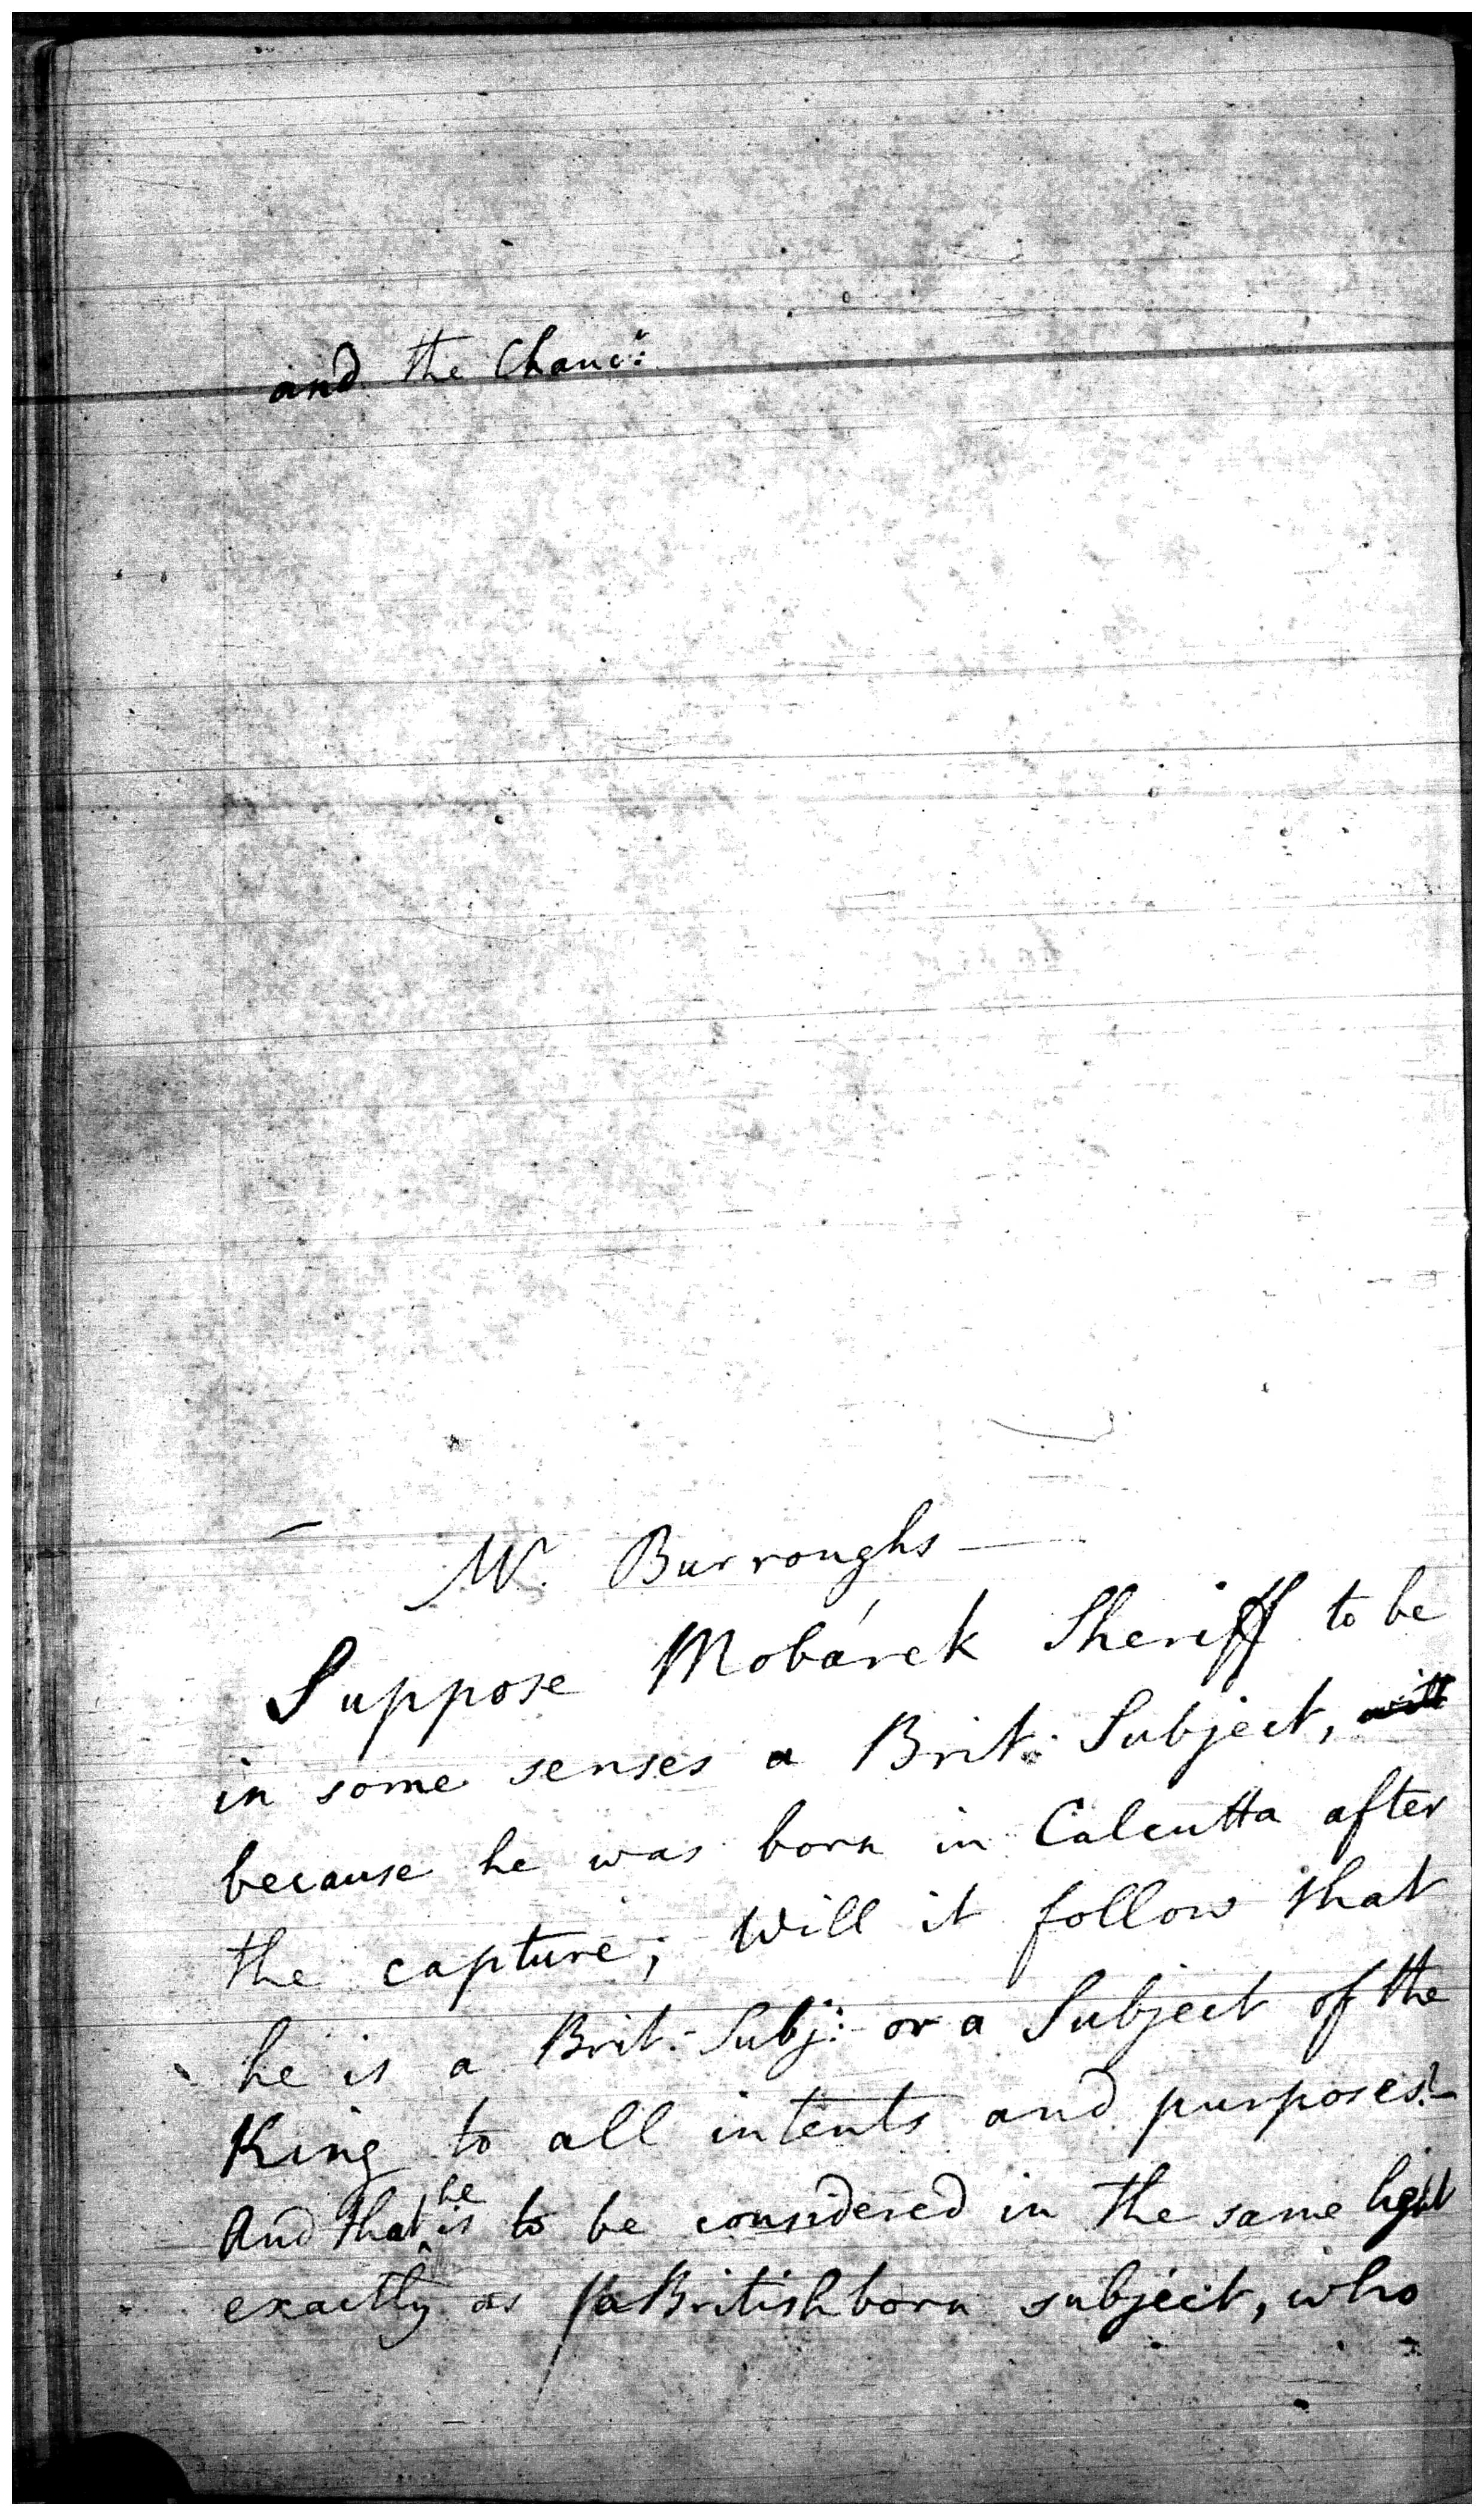 and the Chanc:r
Mr. Burroughs —
Suppose Mobárek Sheriff to be
in some senses a Brit: Subject, will
because he was born in Calcutta after
the capture; Will it follow that
he is a Brit: Subj: or a Subject of the
King to all intents and purposes? –
And that he is to be considered in the same light
exactly as a British born subject, who